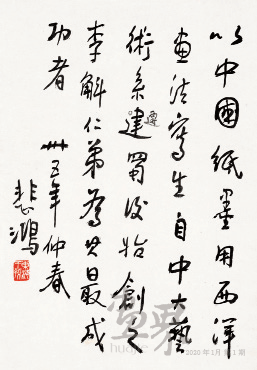 以中國紙墨用西洋
畫法寫生自中大藝
術系遷建蜀後始創之
李斛仁弟為其最成
功者 卅五年仲春
悲鴻
2020年1月第1期